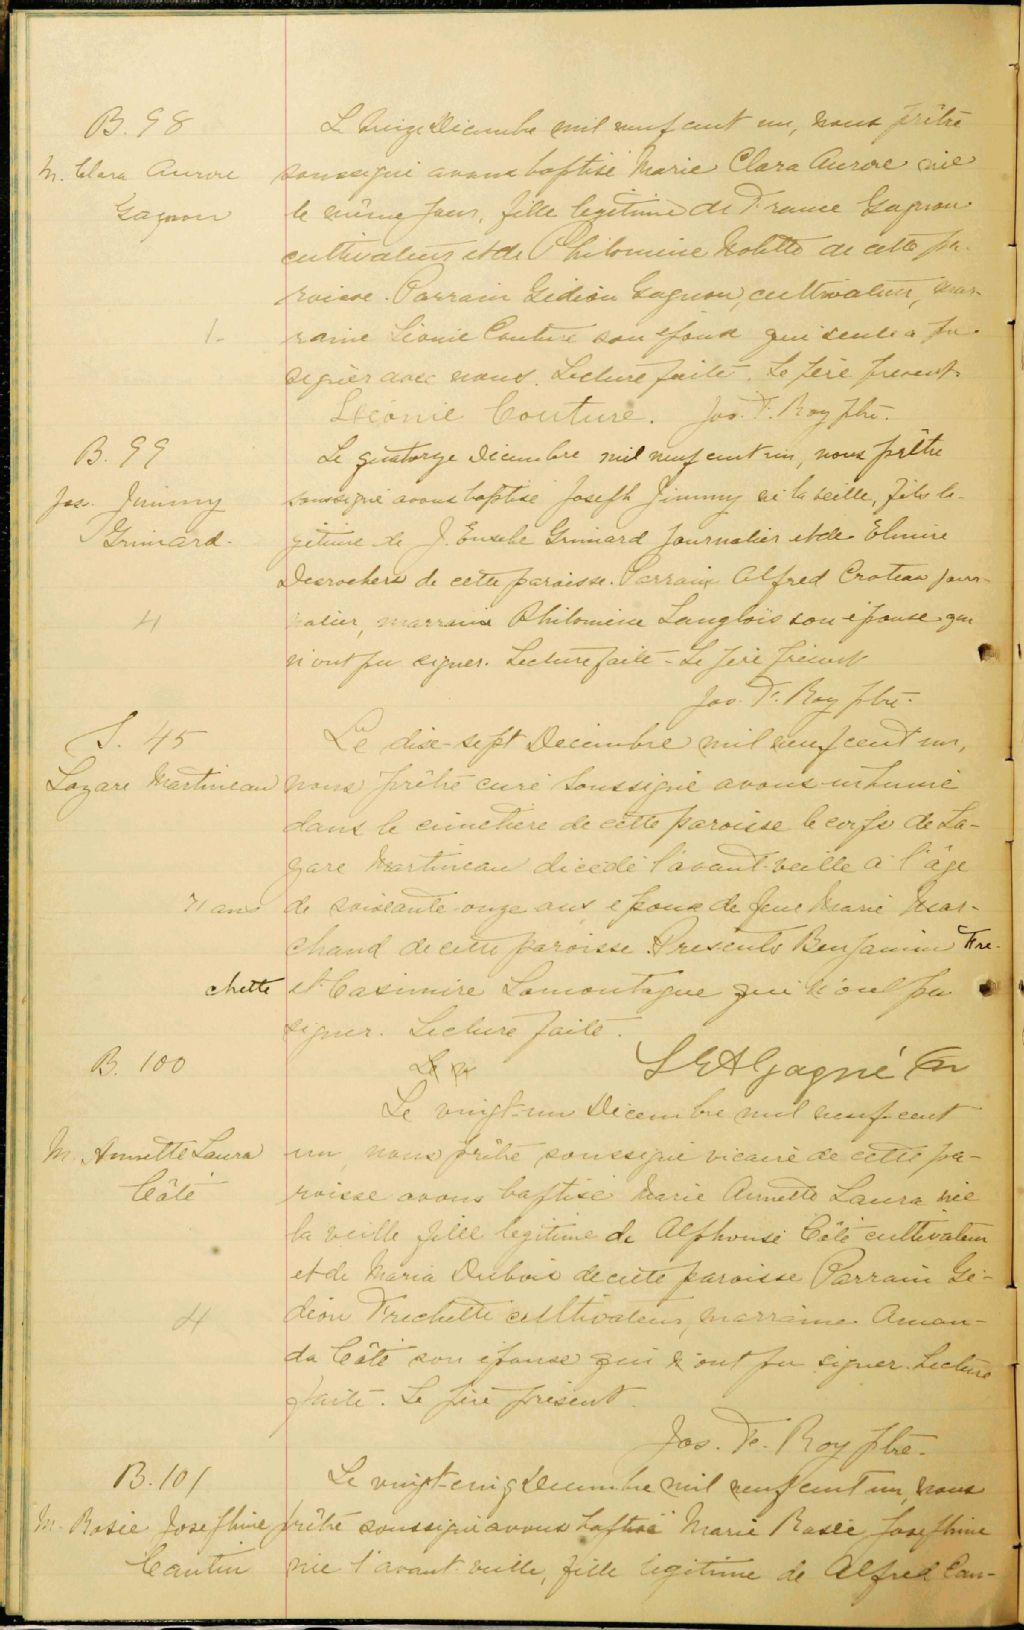 B. 98
M. Clara Aurore
Gagnon
1.
Le treize Decembre mil neuf cent un, nous prêtre
soussigné avons baptisé Marie Clara Aurore née
le même jour, fille legitime de France Gagnon
cultivateur et de Philomine Nolette de cette pa-
roisse. Parrain Gédéon Gagnon, cultivateur, mar-
raine Léonie Couture son épouse qui seule a pu
signer avec nous. Lecture faite. Le père present.
Léonie Couture. Jos. F. Roy ptre.
B. 99
Jos. Jimmy
Grimard.
4
Le quatorze Decembre mil neuf cent un, nous prêtre
soussigné avons baptisé Joseph Jimmy né la veille, fils le-
gitime de J. Eusebe Grimard journalier et de Elmire
Desrochers de cette paroisse. Parrain Alfred Croteau jour-
nalier, marraine Philomine Langlois son épouse qui
n'ont pu signer. Lecture faite - Le père present
Jos. F. Roy ptre.
S. 45
Lazare Martineau
71 ans
Le dix-sept Decembre mil neuf cent un,
nous prêtre curé soussigné avons inhumé
dans le cimetière de cette paroisse le corps de La-
zare Martineau décédé l'avant-veille à l'âge
de soixante-onze ans, époux de feue Marie Mar-
chand de cette paroisse. Presents Benjamin Fre-
chette et Casimire Lamontagne qui n'ont pu
signer. Lecture faite.
SEAGagné
B. 100
M. Annette Laura
Côté
4
Le vingt-un Decembre mil neuf cent
un, nous prêtre soussigné vicaire de cette pa-
roisse avons baptisé Marie Annette Laura née
la veille fille legitime de Alphonse Côté cultivateur
et de Maria Dubois de cette paroisse Parrain Gé-
déon Frechette cultivateur, marraine Aman-
da Côté son épouse qui n'ont pu signer. Lecture
faite. Le père présent.
Jos. F. Roy ptre.
B. 101
M. Rosée Josephine
Cantin
Le vingt-cinq Decembre mil neuf cent un, nous
prêtre soussigné avons baptisé Marie Rosée Josephine
née l'avant-veille, fille legitime de Alfred Can-